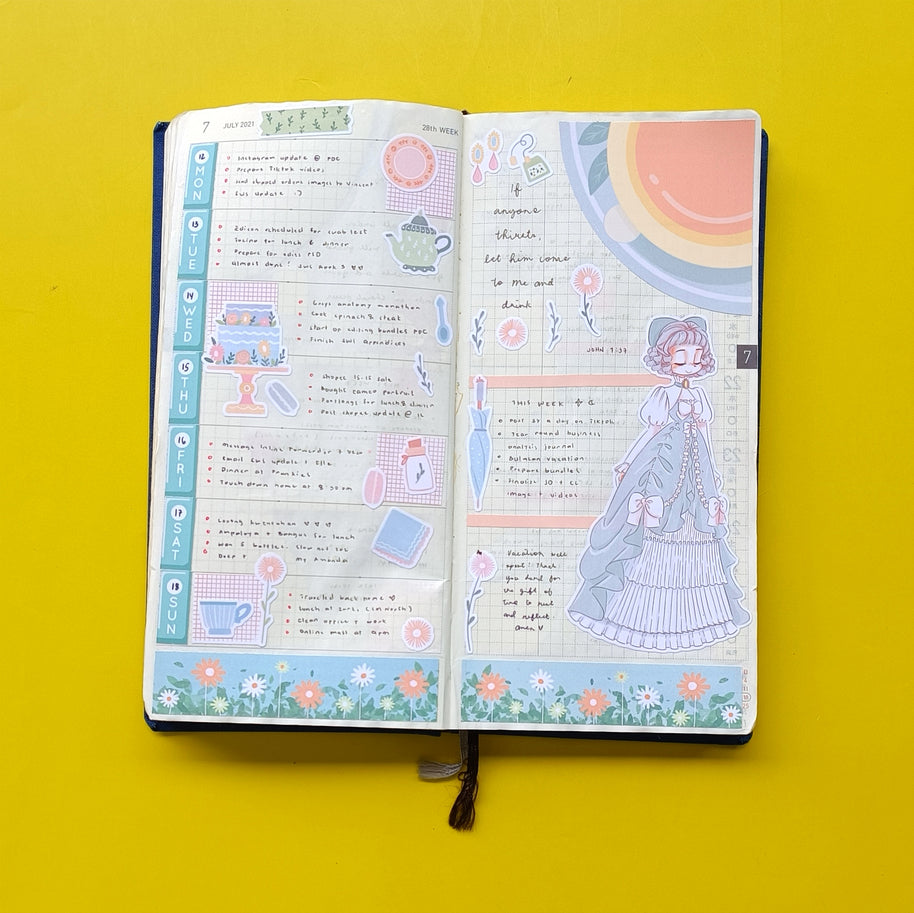 7 JULY 2021 28th WEEK
12 MON
Instagram update @ PDC
Prepare TikTok videos
send shopee orders images to Vincent
SWS update :)
13 TUE
Edison scheduled for
for lunch & dinner
Prepare for edits PSD
Almost done! SWS Book 3
14 WED
Greys anatomy marathon
Cook spinach & steak
start of editing bundles PDC
Finish SWS Appendices
15 THU
Shopee 15.15 sale
Bought cameo portrait
for lunch & dinner
Post shopee update @ 12
16 FRI
Message
Email SWS update
Dinner at Frankies
Touch down home at 8:30 pm
17 SAT
Ampalaya + Bangus for lunch
Won 2 battles. Slow not
My Amanda
18 SUN
Travelled back home
Lunch at
Clean office + work
Online mass at 6pm
If
anyone
thirsts,
let him come
to me and
drink
JOHN 7:37
7
THIS WEEK
Post 2x a day on TikTok
Year round business
analysis journal
Bulakan vacation
Prepare bundles
Finalize SO + CC
image + videos
Vacation well
spent! Thank
you Lord for
the gift of
time to rest
and reflect.
Amen